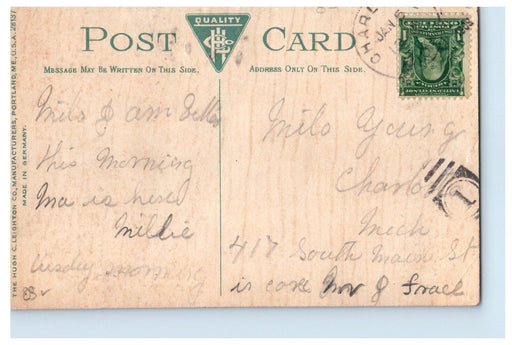 POST CARD
QUALITY
MESSAGE MAY BE WRITTEN ON THIS SIDE.
ADDRESS ONLY ON THIS SIDE.
THE HUGH C. LEIGHTON CO., MANUFACTURERS, PORTLAND, ME., U.S.A.
MADE IN GERMANY.
CHARL
JAN
Milo I am
this morning
Ma is here
Millie
morning
Milo Young
Charlo
Mich
417 South Main St
is care
1